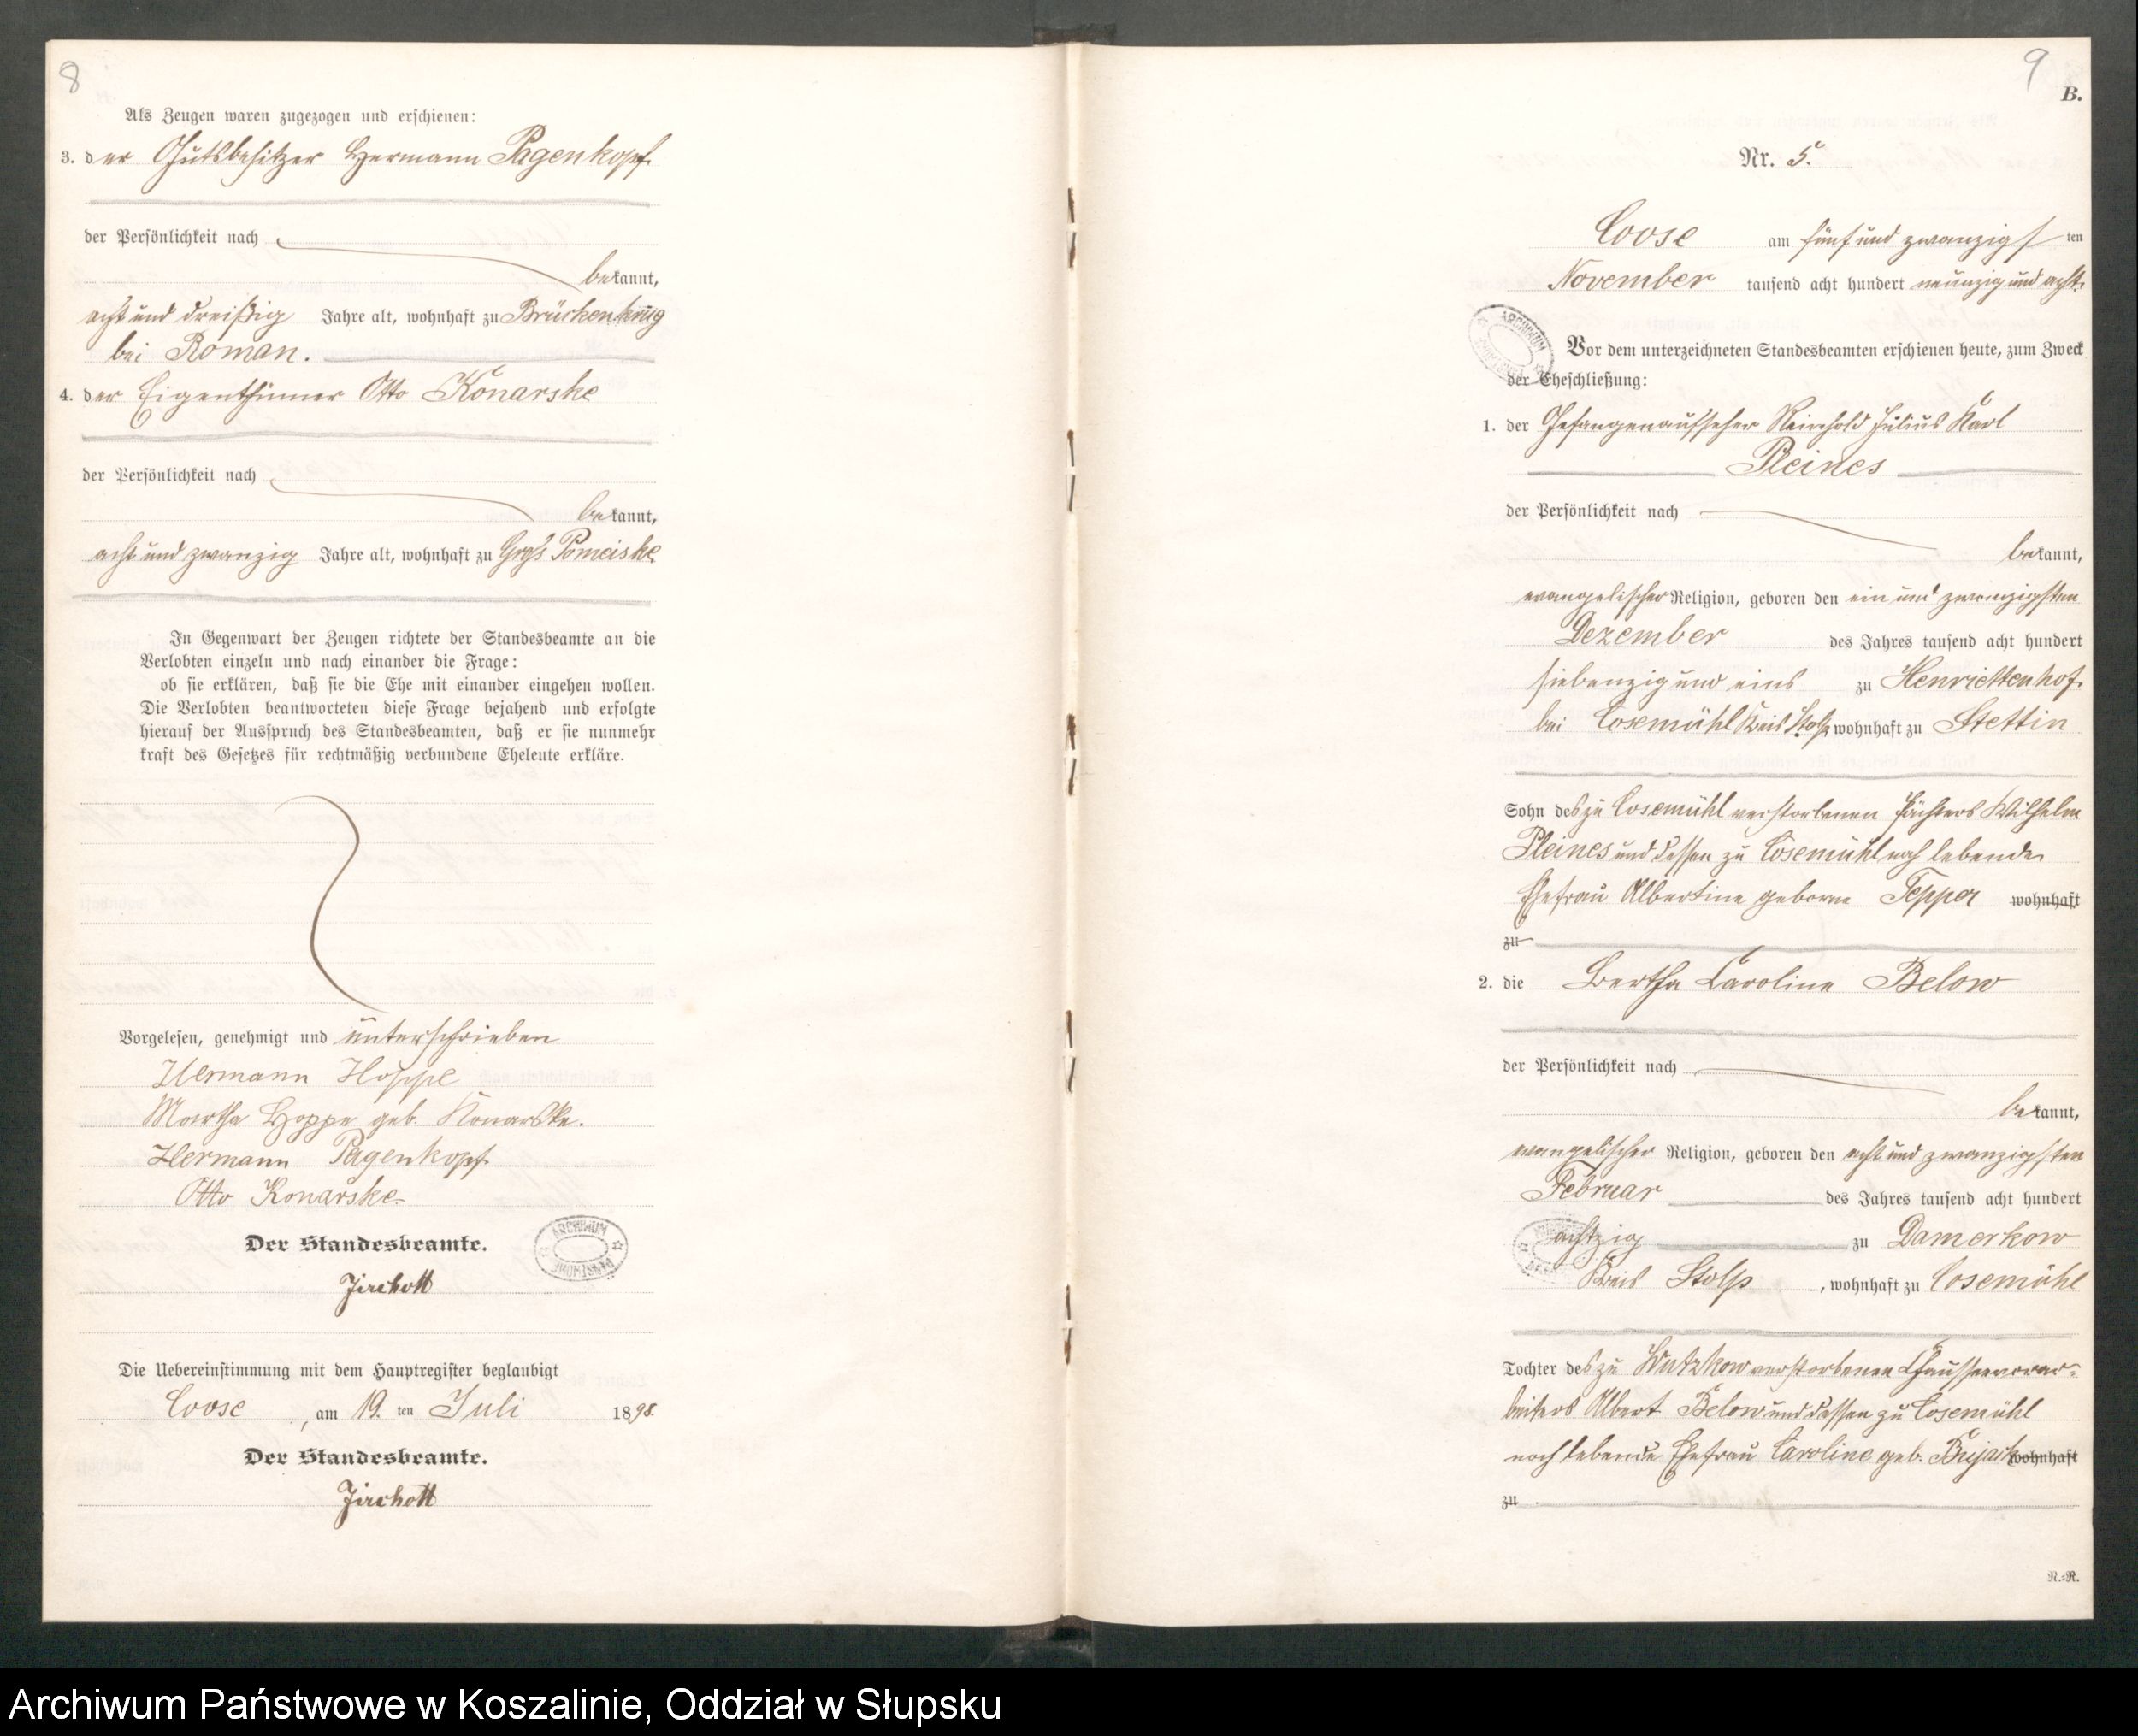 8
Als Zeugen waren zugezogen und erschienen:
3. der Gutsbesitzer Hermann Pagenkopf
der Persönlichkeit nach
bekannt,
acht und dreißig Jahre alt, wohnhaft zu Brückenkrug
bei Roman.
4. der Eigenthümer Otto Konarske
der Persönlichkeit nach
bekannt,
acht und zwanzig Jahre alt, wohnhaft zu Groß Pomeiske
In Gegenwart der Zeugen richtete der Standesbeamte an die
Verlobten einzeln und nach einander die Frage:
ob sie erklären, daß sie die Ehe mit einander eingehen wollen.
Die Verlobten beantworteten diese Frage bejahend und erfolgte
hierauf der Ausspruch des Standesbeamten, daß er sie nunmehr
kraft des Gesetzes für rechtmäßig verbundene Eheleute erkläre.
Vorgelesen, genehmigt und unterschrieben
Hermann Hoppe
Martha Hoppe geb. Konarske.
Hermann Pagenkopf
Otto Konarske.
Der Standesbeamte.
Jirchott
ARCHIWUM PAŃSTWOWE
Die Uebereinstimmung mit dem Hauptregister beglaubigt
Coose, am 19. ten Juli 1898.
Der Standesbeamte.
Jirchott
9
B.
Nr. 5.
Coose am fünf und zwanzigsten
November tausend acht hundert neunzig und acht.
ARCHIWUM
Vor dem unterzeichneten Standesbeamten erschienen heute, zum Zweck
der Eheschließung:
1. der Gefangenaufseher Reinhold Julius Karl
Pleines
der Persönlichkeit nach
bekannt,
evangelischer Religion, geboren den ein und zwanzigsten
Dezember des Jahres tausend acht hundert
siebenzig und eins zu Henriettenhof
bei Cosemühl Kreis Stolp wohnhaft zu Stettin
Sohn des zu Cosemühl verstorbenen Pächters Wilhelm
Pleines und dessen zu Cosemühl noch lebende
Ehefrau Albertine geborne Tepper wohnhaft
zu
2. die Bertha Caroline Below
der Persönlichkeit nach
bekannt,
evangelischer Religion, geboren den acht und zwanzigsten
Februar des Jahres tausend acht hundert
achtzig zu Damerkow
Kreis Stolp, wohnhaft zu Cosemühl
Tochter des zu Wutzkow verstorbenen Chausseevorar-
beiters Albert Below und dessen zu Cosemühl
noch lebende Ehefrau Caroline geb. wohnhaft
zu
R.-R.
Archiwum Państwowe w Koszalinie, Oddział w Słupsku